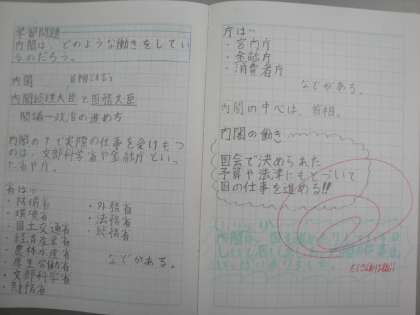 学習問題
内閣は、どのような働きをしてい
るのだろう。
内閣
内閣総理大臣と国務大臣
閣議→政治の進め方
内閣の下で実際の仕事を受けもつ
のは、文部科学省や金融庁といっ
た省や庁。
省は…
・防衛省
・環境省
・国土交通省
・経済産業省
・農林水産省
・厚生労働省
・文部科学省
・財務省
・外務省
・法務省
・総務省
などがある。
庁は…
・宮内庁
・金融庁
・消費者庁
などがある。
内閣の中心は、首相。
内閣の働き
国会で決められた
予算や法律にもとづいて
国の仕事を進める!!